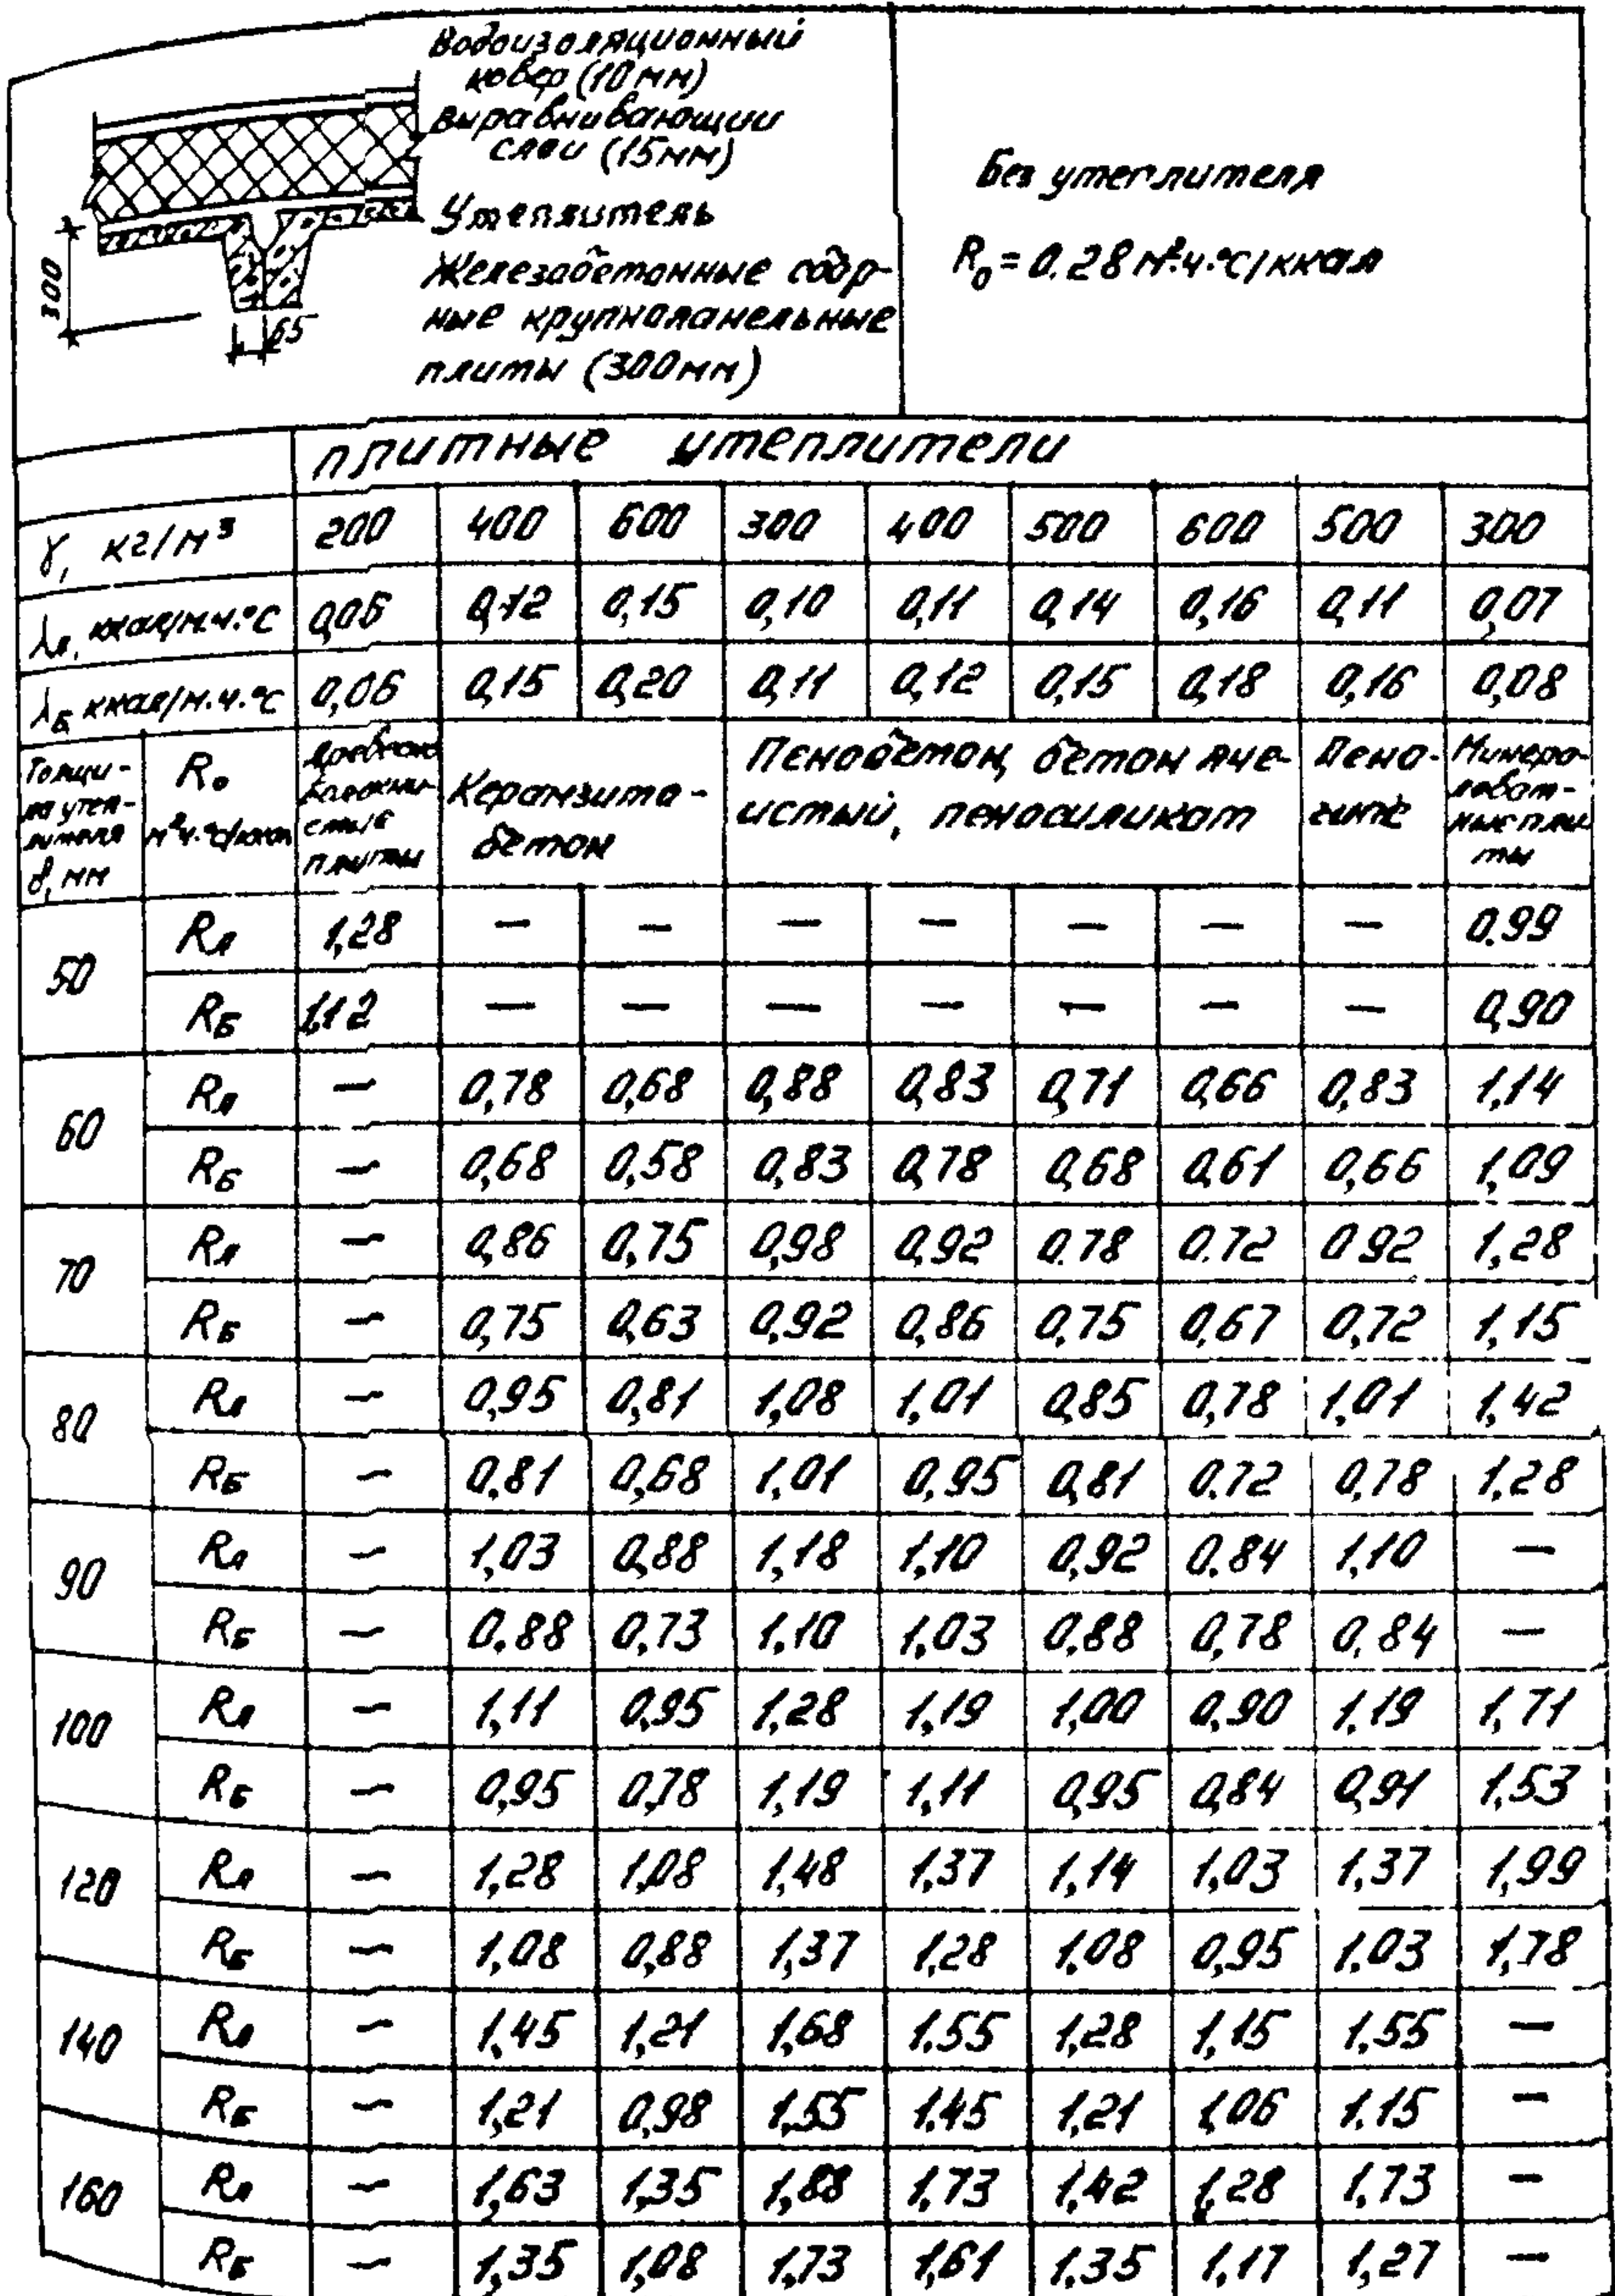 Водоизоляционный
ковер (10 мм)
Выравнивающий
слой (15 мм)
Утеплитель
Железобетонные сбор-
ные крупнопанельные
плиты (300 мм)
300
65
Без утеплителя
R₀ = 0.28 м².ч.°С/ккал
плитные утеплители
γ, кг/м³ 200 400 600 300 400 500 600 500 300
λА, ккал/м.ч.°С 0,06 0,12 0,15 0,10 0,11 0,14 0,16 0,11 0,07
λБ ккал/м.ч.°С 0,06 0,15 0,20 0,11 0,12 0,15 0,18 0,16 0,08
Толщи-
на утеп-
лителя
δ, мм
R₀
м².ч.°С/ккал
плиты
Керамзито-
бетон
Пенобетон, бетон яче-
истый, пеносиликат
Пено-
Минера-
ловат-
ные пли
ты
50 RА 1,28 — — — — — — — 0.99
RБ 1,12 — — — — — — — 0,90
60 RА — 0,78 0,68 0,88 0,83 0,71 0,66 0,83 1,14
RБ — 0,68 0,58 0,83 0,78 0,68 0,61 0,66 1,09
70 RА — 0,86 0,75 0,98 0,92 0.78 0.72 0 92 1,28
RБ — 0,75 0,63 0,92 0,86 0,75 0,67 0,72 1,15
80 RА — 0,95 0,81 1,08 1,01 0,85 0,78 1,01 1,42
RБ — 0,81 0,68 1,01 0,95 0,81 0.72 0,78 1,28
90 RА — 1,03 0,88 1,18 1,10 0,92 0.84 1,10 —
RБ — 0.88 0,73 1,10 1,03 0,88 0,78 0,84 —
100 RА — 1,11 0,95 1,28 1,19 1,00 0,90 1,19 1,71
RБ — 0,95 0,78 1,19 1,11 0,95 0,84 0,91 1,53
120 RА — 1,28 1,08 1,48 1,37 1,14 1,03 1,37 1,99
RБ — 1,08 0,88 1,37 1,28 1,08 0,95 1.03 1,78
140 RА — 1,45 1,21 1,68 1.55 1,28 1,15 1,55 —
RБ — 1,21 0,98 1,55 1.45 1,21 1,06 1.15 —
160 RА — 1,63 1,35 1,88 1,73 1,42 1,28 1,73 —
RБ — 1,35 1,08 1,73 1,61 1,35 1,17 1,27 —